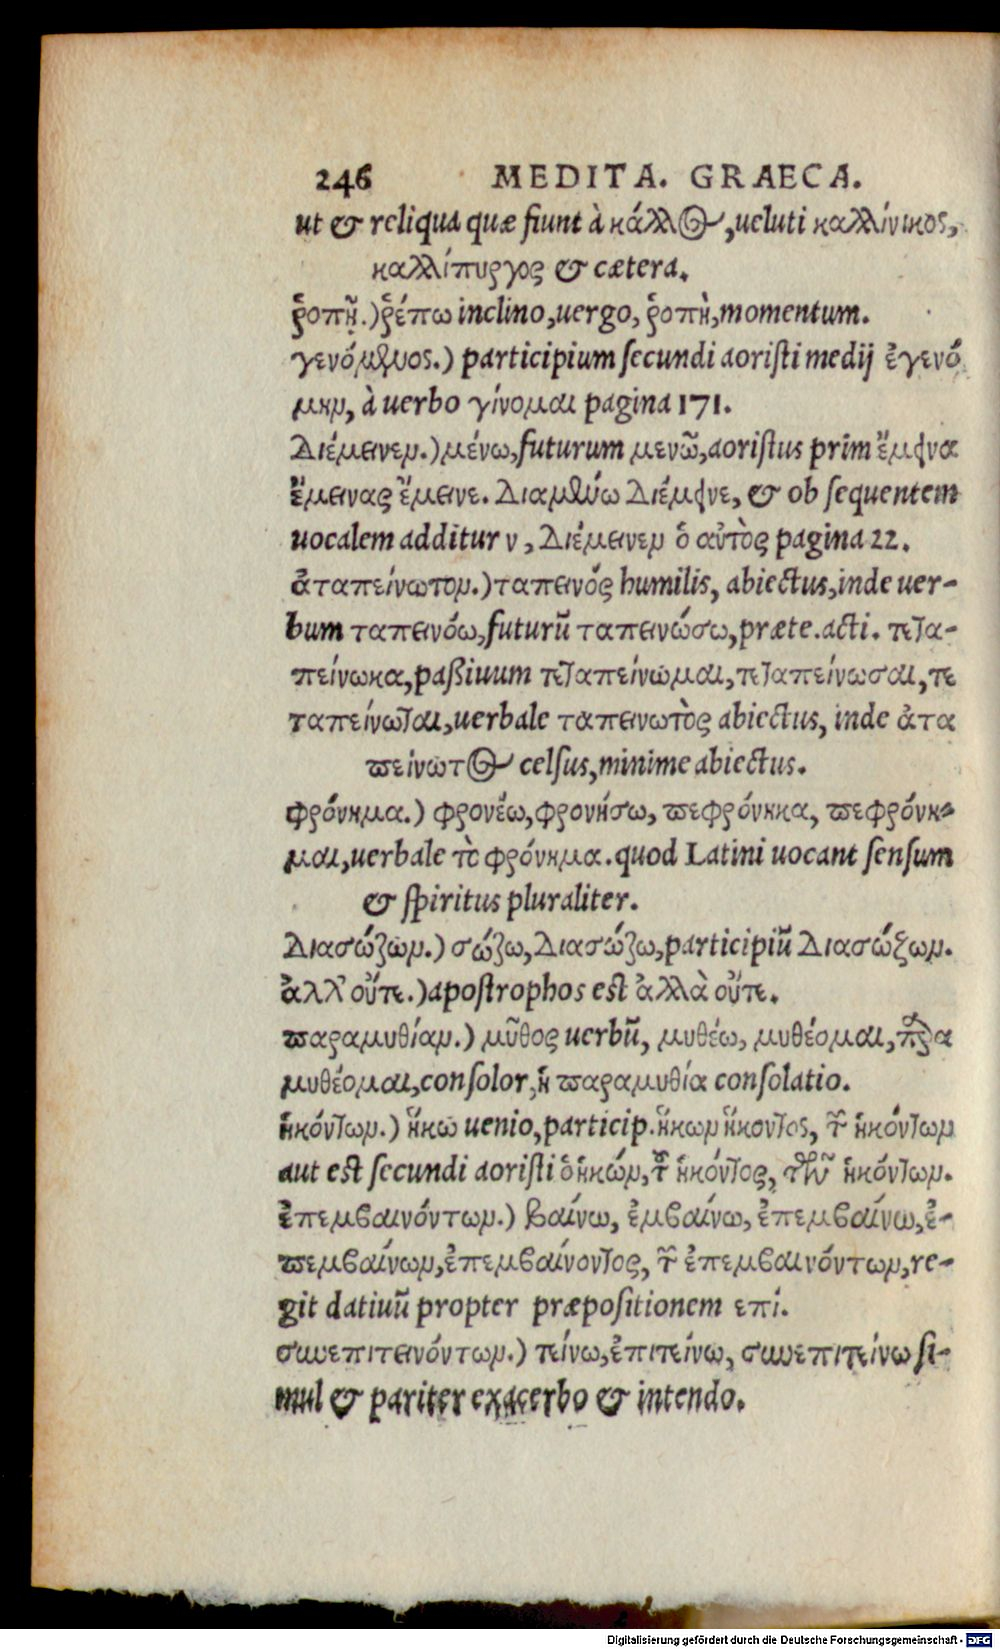 246 MEDITA. GRAECA.
ut & reliqua quæ fiunt à κάλλος, ueluti καλλίνικος,
καλλίπυργος & cætera.
ῥοπῇ.) ῥέπω inclino, uergo, ῥοπὴ, momentum.
γενόμενος.) participium secundi aoristi medij ἐγενό
μην, à uerbo γίνομαι pagina 171.
Διέμεινεν.) μένω, futurum μενῶ, aoristus prim ἔμεινα
ἔμεινας ἔμεινε. Διαμένω Διέμεινε, & ob sequentem
uocalem additur ν, Διέμεινεν ὁ αὐτὸς pagina 22.
ἀταπείνωτον.) ταπεινός humilis, abiectus, inde uer-
bum ταπεινόω, futurũ ταπεινώσω, præte. acti. τετα-
πείνωκα, paßiuum τεταπείνωμαι, τεταπείνωσαι, τε
ταπείνωται, uerbale ταπεινωτὸς abiectus, inde ἀτα
πείνωτος celsus, minime abiectus.
φρόνημα.) φρονέω, φρονήσω, πεφρόνηκα, πεφρόνη-
μαι, uerbale τὸ φρόνημα. quod Latini uocant sensum
& spiritus pluraliter.
Διασώζων.) σώζω, Διασώζω, participiũ Διασώζων.
ἀλλ' οὔτε.) apostrophos est ἀλλὰ οὔτε.
παραμυθίαν.) μῦθος uerbũ, μυθέω, μυθέομαι, παρα
μυθέομαι, consolor, ἡ παραμυθία consolatio.
ἡκόντων.) ἥκω uenio, particip. ἥκων ἥκοντος, τῶν ἡκόντων
aut est secundi aoristi ὁ ἡκών, τοῦ ἡκόντος, τῶν ἡκόντων.
ἐπεμβαινόντων.) βαίνω, ἐμβαίνω, ἐπεμβαίνω, ἐ-
πεμβαίνων, ἐπεμβαίνοντος, τῶν ἐπεμβαινόντων, re-
git datiuũ propter præpositionem επί.
συνεπιτεινόντων.) τείνω, ἐπιτείνω, συνεπιτείνω si-
mul & pariter exacerbo & intendo.
Digitalisierung gefördert durch die Deutsche Forschungsgemeinschaft - DFG